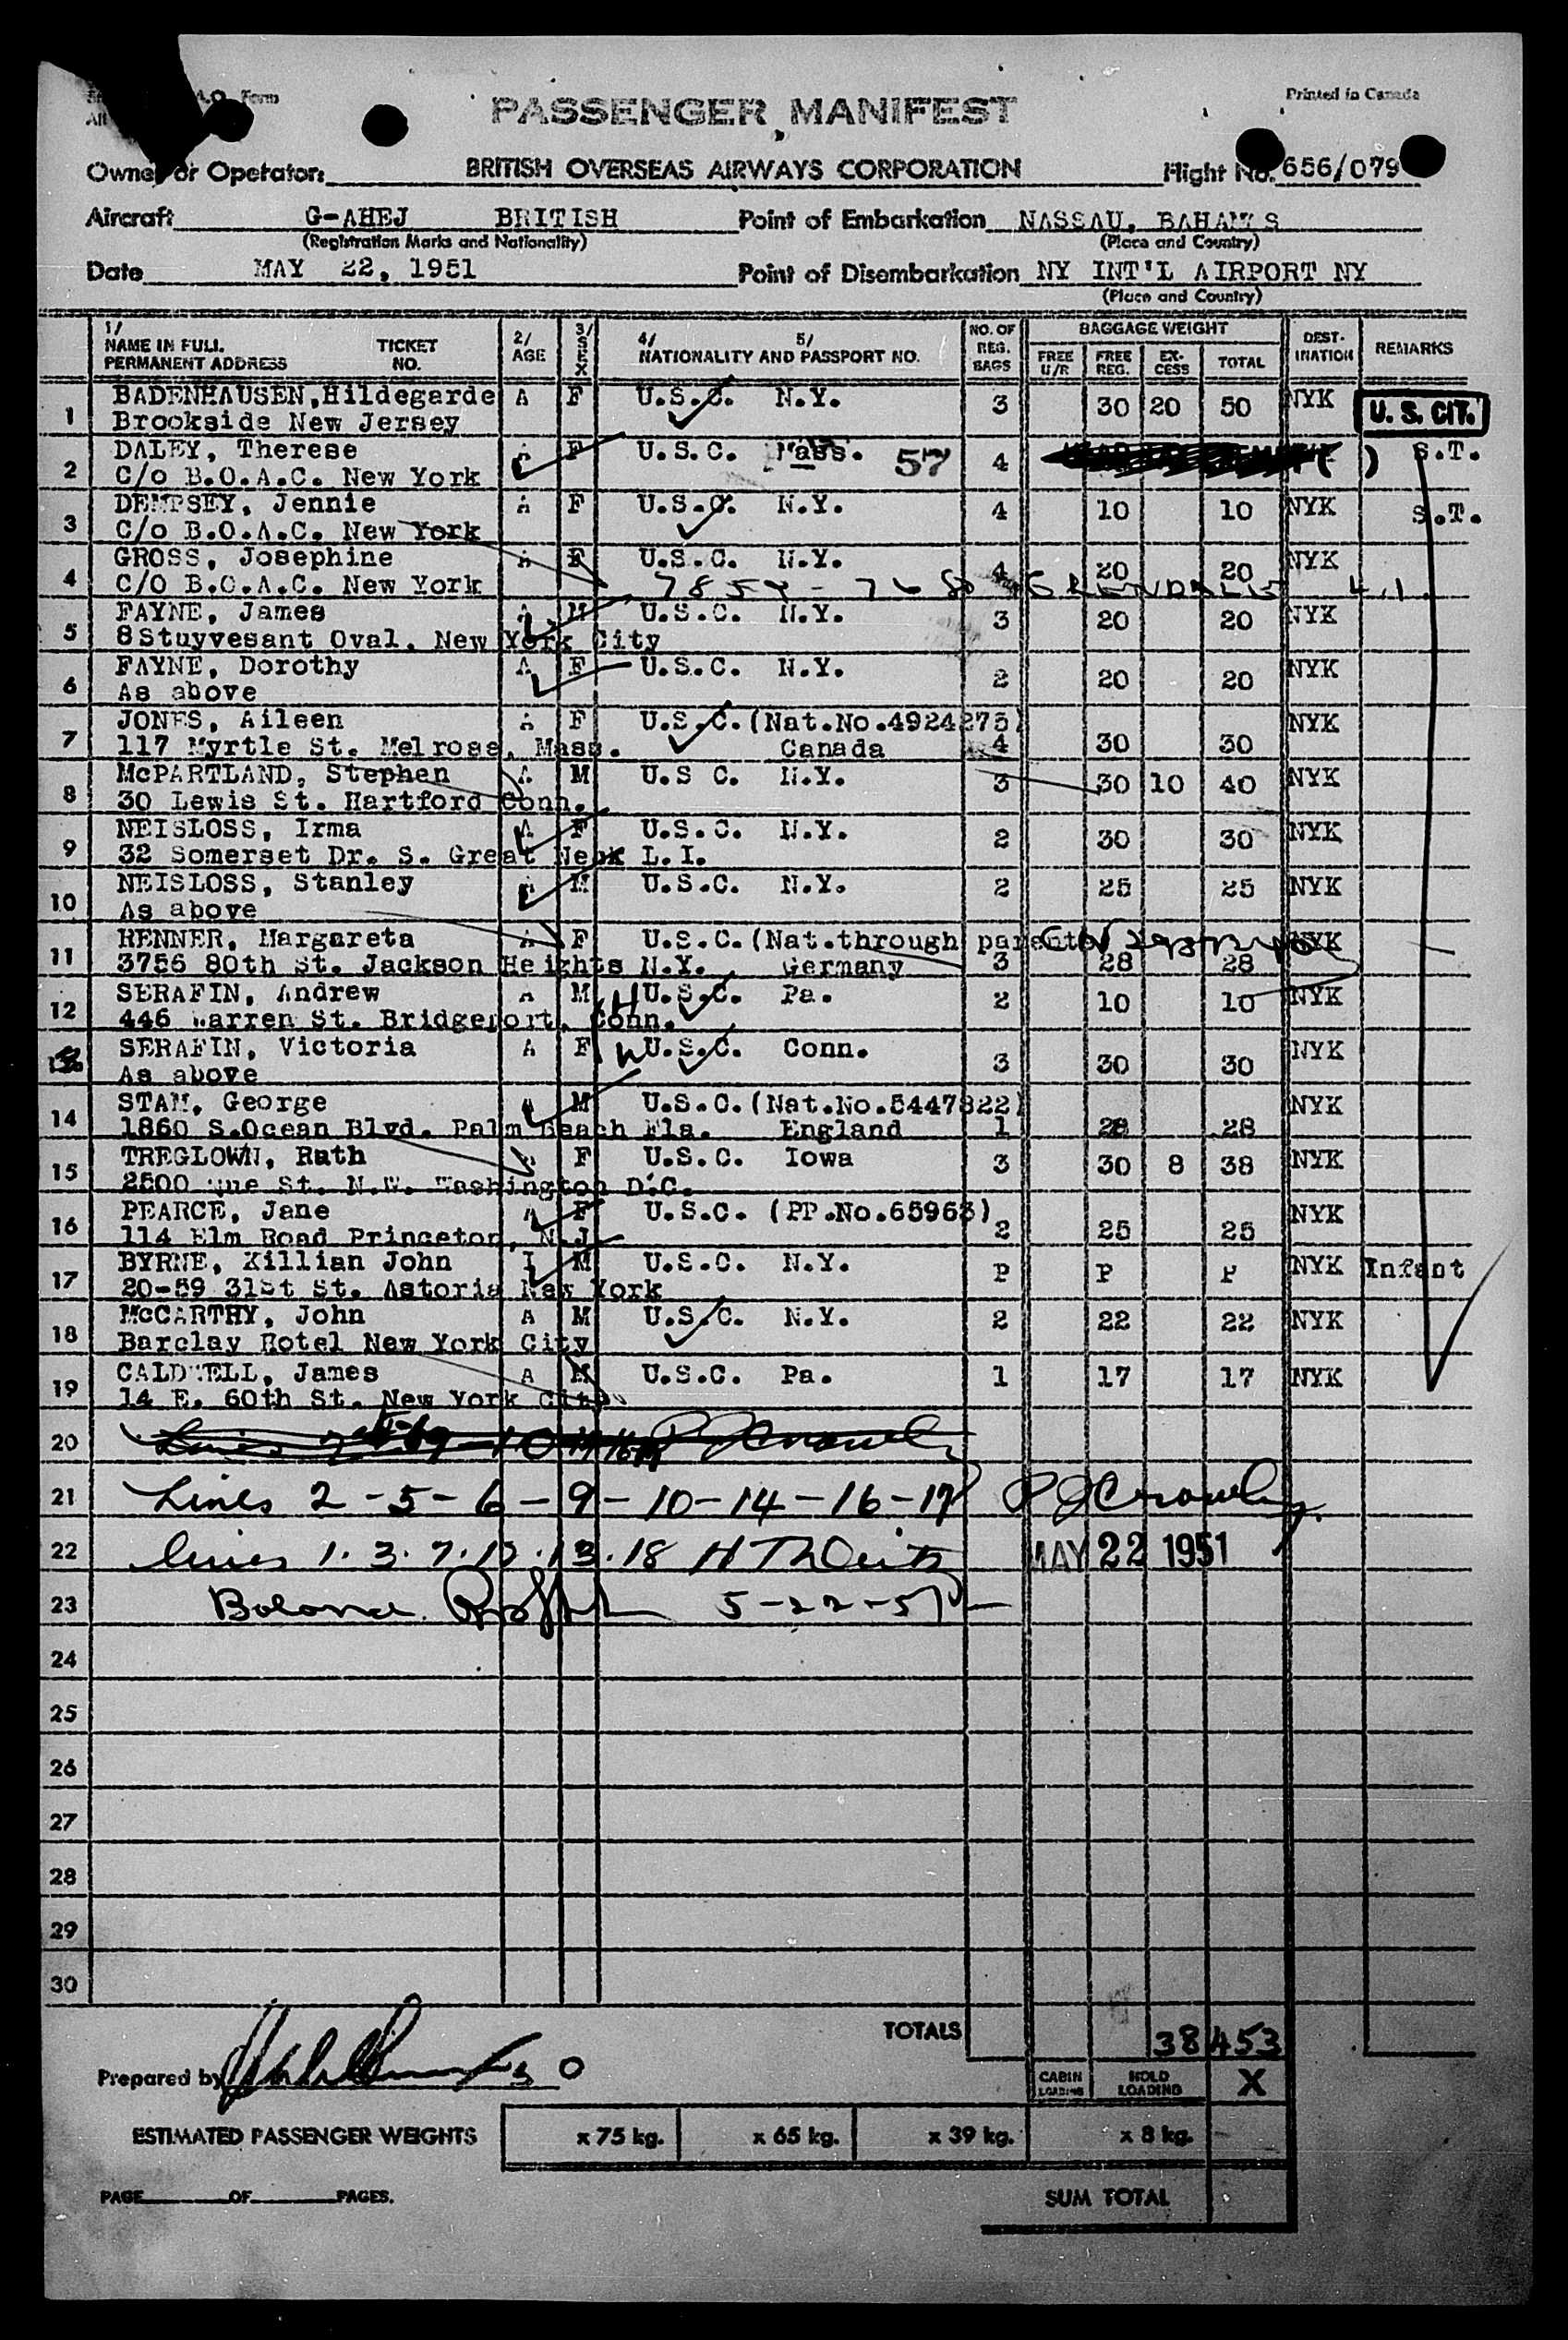 Form
Printed in Canada
All
PASSENGER MANIFEST
Owner or Operator: BRITISH OVERSEAS AIRWAYS CORPORATION Flight No. 656/079
Aircraft G-AHEJ BRITISH Point of Embarkation NASSAU, BAHAMAS
(Registration Marks and Nationality) (Place and Country)
Date MAY 22, 1951 Point of Disembarkation NY INT'L AIRPORT NY
(Place and Country)
1/ NAME IN FULL PERMANENT ADDRESS TICKET NO. 2/ AGE 3/ SEX 4/ 5/ NATIONALITY AND PASSPORT NO. NO. OF REG. BAGS BAGGAGE WEIGHT FREE U/R FREE REG. EX-CESS TOTAL DEST-INATION REMARKS
1 BADENHAUSEN, Hildegarde A F U.S.C. N.Y. 3 30 20 50 NYK U. S. CIT.
Brookside New Jersey
2 DALEY, Therese A F U.S.C. Mass. 57 4 ( ) S.T.
C/o B.O.A.C. New York
3 DEMPSEY, Jennie A F U.S.C. N.Y. 4 10 10 NYK S.T.
C/o B.O.A.C. New York
4 GROSS, Josephine A F U.S.C. N.Y. 4 20 20 NYK
C/O B.O.A.C. New York GLENDALE L.I.
5 FAYNE, James A M U.S.C. N.Y. 3 20 20 NYK
8 Stuyvesant Oval. New York City
6 FAYNE, Dorothy A F U.S.C. N.Y. 2 20 20 NYK
As above
7 JONES, Aileen A F U.S.C. (Nat.No.4924275) NYK
117 Myrtle St. Melrose, Mass. Canada 4 30 30
8 McPARTLAND, Stephen A M U.S C. N.Y. 3 30 10 40 NYK
30 Lewis St. Hartford Conn.
9 NEISLOSS, Irma A F U.S.C. N.Y. 2 30 30 NYK
32 Somerset Dr. S. Great Neck L.I.
10 NEISLOSS, Stanley A M U.S.C. N.Y. 2 25 25 NYK
As above
11 RENNER, Margareta A F U.S.C. (Nat.through parents) NYK
3756 80th St. Jackson Heights N.Y. Germany 3 28 28
12 SERAFIN, Andrew A M H U.S.C. Pa. 2 10 10 NYK
446 Warren St. Bridgeport, Conn.
13 SERAFIN, Victoria A F W U.S.C. Conn. 3 30 30 NYK
As above
14 STAM, George A M U.S.C. (Nat.No.5447822) NYK
1860 S.Ocean Blvd. Palm Beach Fla. England 1 28 28
15 TREGLOWN, Ruth A F U.S.C. Iowa 3 30 8 38 NYK
2500 Que St. N.W. Washington D.C.
16 PEARCE, Jane A F U.S.C. (PP.No.65963) 2 25 25 NYK
114 Elm Road Princeton, N.J.
17 BYRNE, Killian John I M U.S.C. N.Y. P P P NYK Infant
20-59 31st St. Astoria New York
18 McCARTHY, John A M U.S.C. N.Y. 2 22 22 NYK
Barclay Hotel New York City
19 CALDWELL, James A M U.S.C. Pa. 1 17 17 NYK
14 E. 60th St. New York City
20
21 Lines 2-5-6-9-10-14-16-17 P J Crowley
22 lines 1.3.7.12.13.18 MAY 22 1951
23 5-22-51
24
25
26
27
28
29
30
TOTALS 38 453
Prepared by
CABIN LOADING HOLD LOADING X
ESTIMATED PASSENGER WEIGHTS x 75 kg. x 65 kg. x 39 kg. x 8 kg.
PAGE OF PAGES. SUM TOTAL